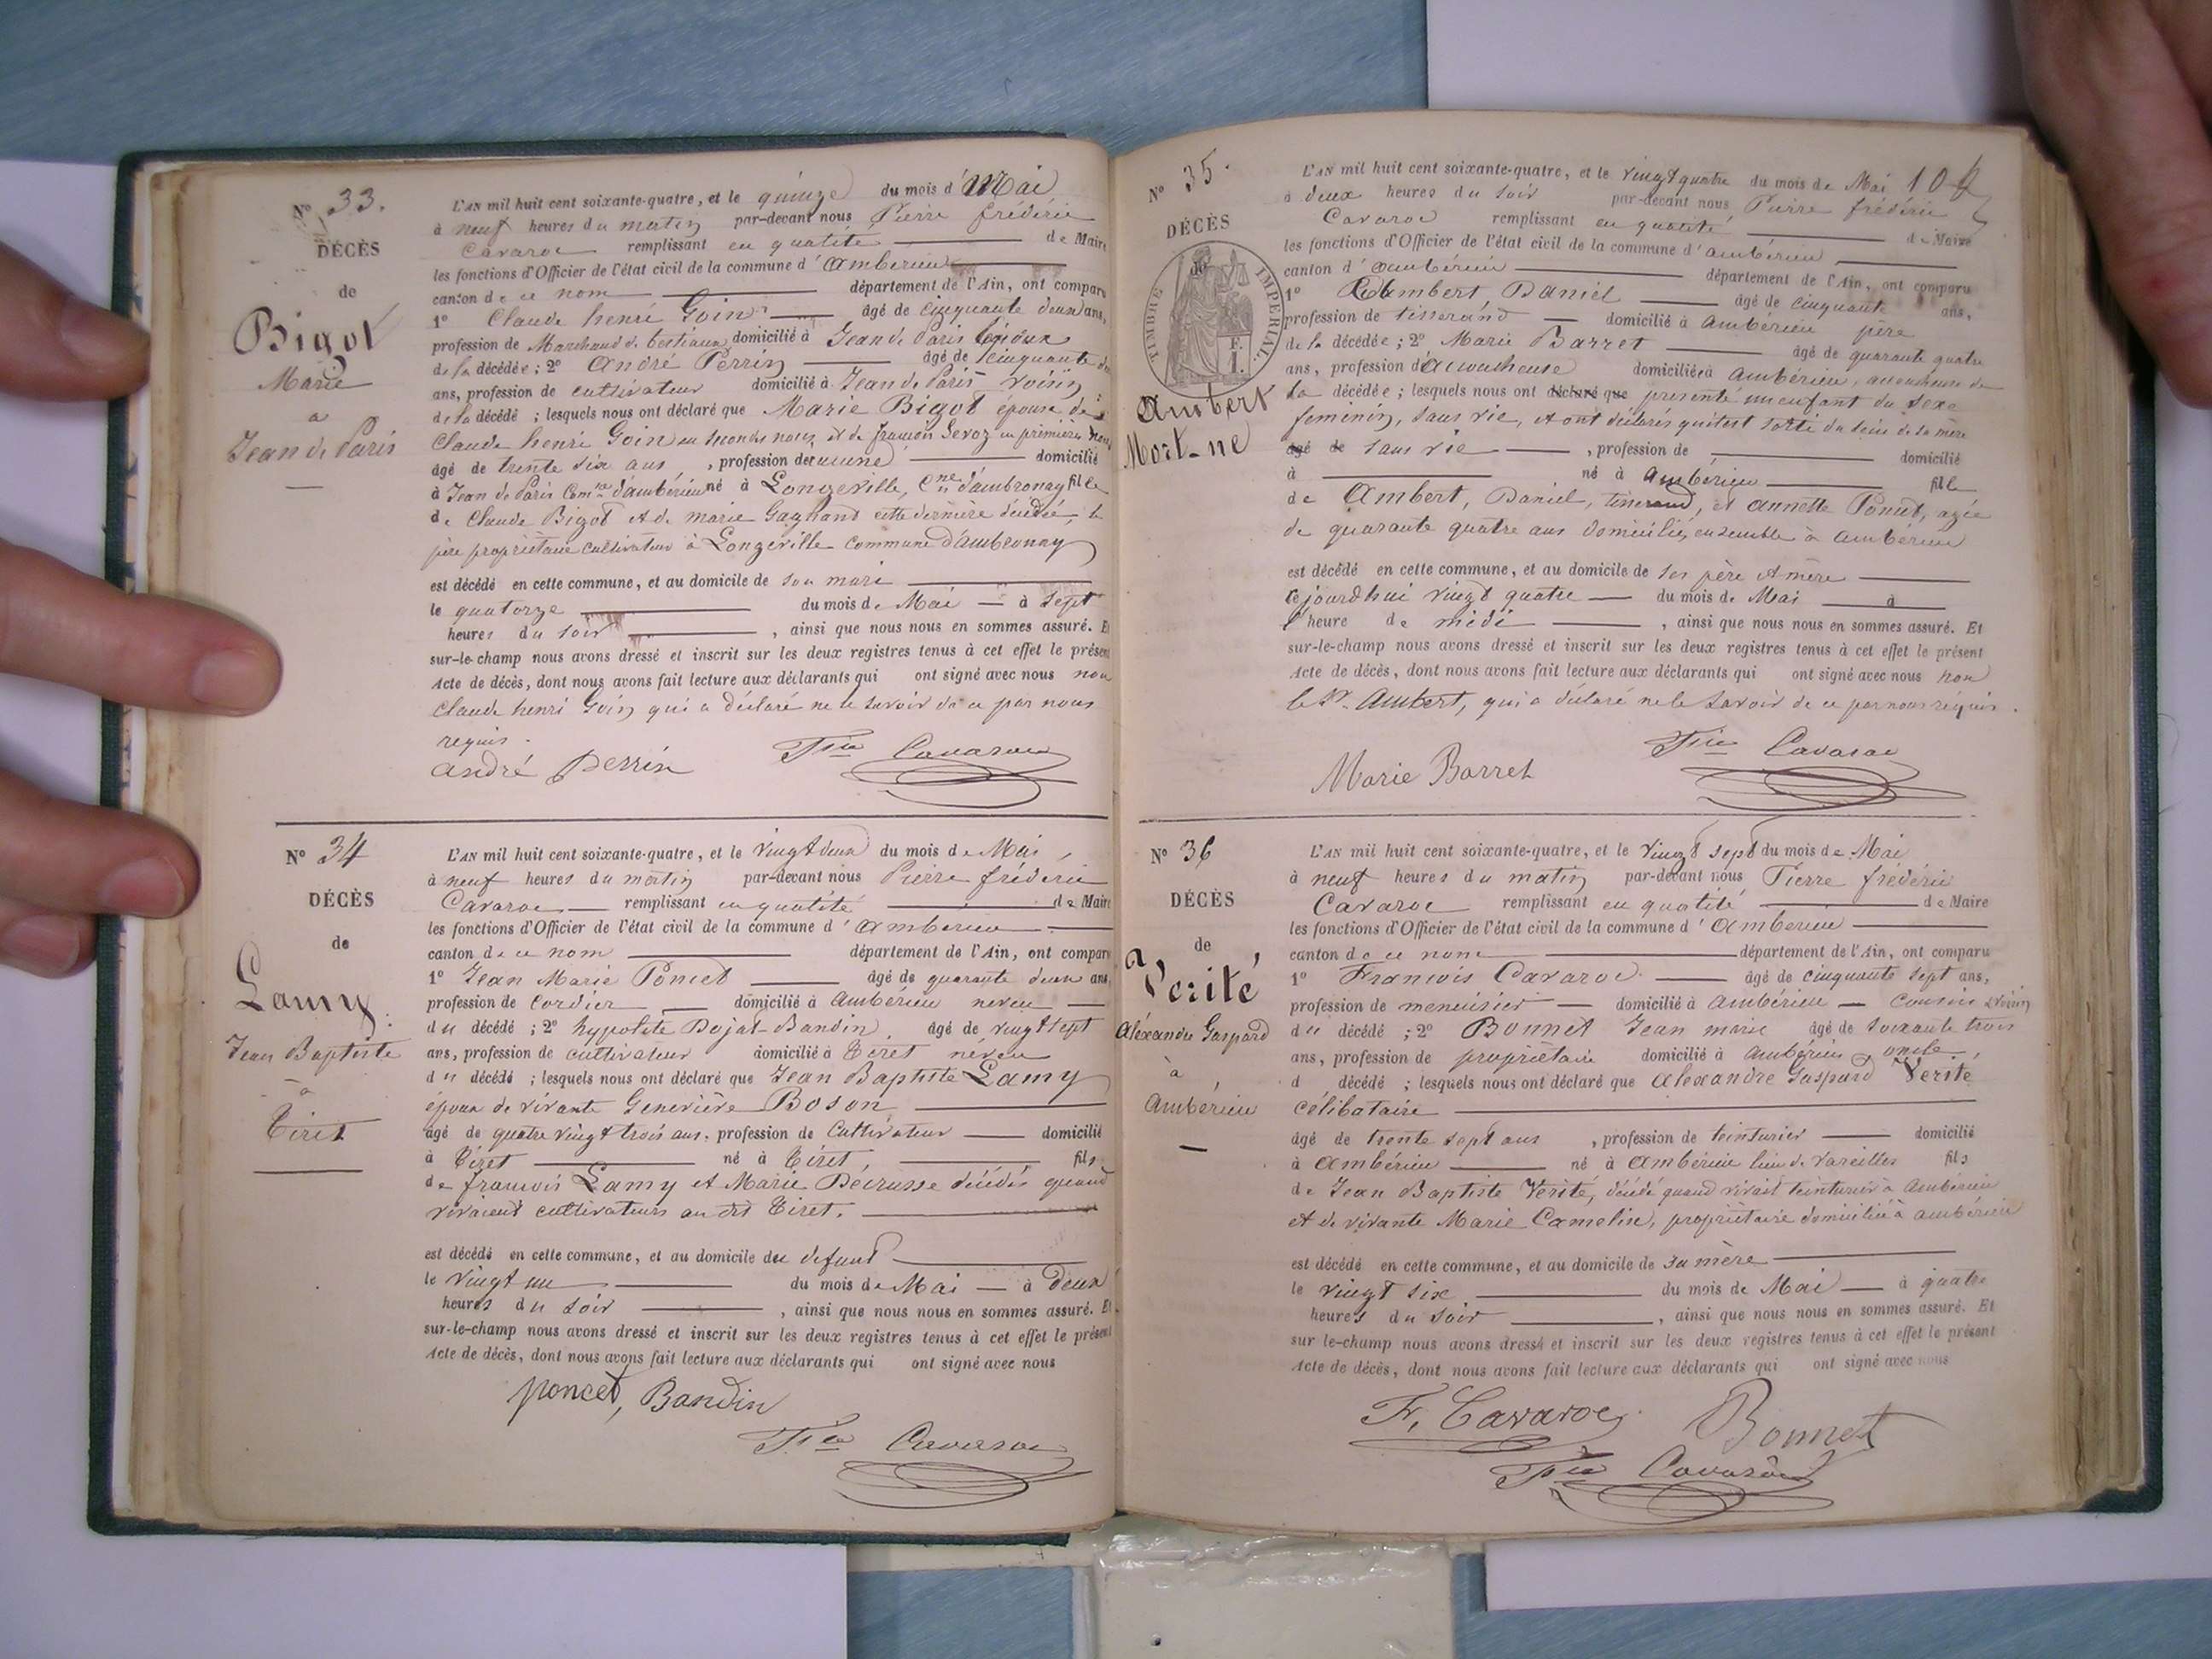 N° 33.
DÉCÈS
de
Bigot
Marie
à
Jean de Paris
L'AN mil huit cent soixante-quatre, et le quinze du mois d' Mai
à neuf heures du matin par-devant nous Pierre frédéric
Cavaroc remplissant en qualité de Maire
les fonctions d'Officier de l'état civil de la commune d' ambérieu
canton de ce nom département de l'Ain, ont comparu
1° Claude henri Goin âgé de cinquante deux ans,
profession de Marchand de bestiaux domicilié à Jean de Paris époux
de la décédée ; 2° André Perrin âgé de cinquante
ans, profession de cultivateur domicilié à Jean de Paris voisin
de la décédé ; lesquels nous ont déclaré que Marie Bigot épouse de
Claude henri Goin en secondes noces et de françois Levoz en premières
âgé de trente six ans , profession de aucune domicilié
à Jean de Paris Comne d'ambérieu né à Longeville, Cne d'ambronay fille
de Claude Bigot et de marie Gagnand cette dernière décédée, le
père propriétaire cultivateur à Longeville commune d'ambronay
est décédé en cette commune, et au domicile de son mari
le quatorze du mois de Mai à sept
heures du soir , ainsi que nous nous en sommes assuré. Et
sur-le-champ nous avons dressé et inscrit sur les deux registres tenus à cet effet le présent
Acte de décès, dont nous avons fait lecture aux déclarants qui ont signé avec nous non
Claude henri Goin qui a déclaré ne le savoir de ce par nous
requis.
andré Perrin Fric Cavaroc
N° 34
DÉCÈS
de
Lamy
Jean Baptiste
à
Tiret
L'AN mil huit cent soixante-quatre, et le vingt deux du mois de Mai
à neuf heures du matin par-devant nous Pierre frédéric
Cavaroc remplissant en qualité de Maire
les fonctions d'Officier de l'état civil de la commune d' ambérieu
canton de ce nom département de l'Ain, ont comparu
1° Jean Marie Poncet âgé de quarante deux ans,
profession de cordier domicilié à ambérieu neveu
du décédé ; 2° hypolite Dojat-Bandin âgé de vingt sept
ans, profession de cultivateur domicilié à Tiret neveu
du décédé ; lesquels nous ont déclaré que Jean Baptiste Lamy
époux de vivante Geneviève Boson
âgé de quatre vingt trois ans, profession de Cultivateur domicilié
à Tiret né à Tiret, fils
de françois Lamy et Marie Décrusse décédés quand
vivaient cultivateurs au dit Tiret.
est décédé en cette commune, et au domicile du defunt
le vingt un du mois de Mai à deux
heures du soir , ainsi que nous nous en sommes assuré. Et
sur-le-champ nous avons dressé et inscrit sur les deux registres tenus à cet effet le présent
Acte de décès, dont nous avons fait lecture aux déclarants qui ont signé avec nous
poncet, Bandin
Fric Cavaroc
N° 35.
DÉCÈS
de
TIMBRE IMPERIAL.
F.
1.
Ambert
Mort-né
L'AN mil huit cent soixante-quatre, et le vingt quatre du mois de Mai 10
à deux heures du soir par-devant nous Pierre frédéric
Cavaroc remplissant en qualité de Maire
les fonctions d'Officier de l'état civil de la commune d' ambérieu
canton d' ambérieu département de l'Ain, ont comparu
1° Ambert, Daniel âgé de cinquante ans,
profession de tisserand domicilié à ambérieu père
de la décédée ; 2° Marie Barret âgé de quarante quatre
ans, profession d'accoucheuse domiciliée à ambérieu, accoucheuse de
la décédée ; lesquels nous ont déclaré que présenté un enfant du sexe
feminin, sans vie, et ont déclarés qu'il est sorti du sein de sa mère
âgé de sans vie , profession de domicilié
à né à ambérieu fille
de Ambert, Daniel, tisserand, et annette Poncet, agée
de quarante quatre ans domiciliés ensemble à ambérieu
est décédé en cette commune, et au domicile de ses père et mère
le jourd'hui vingt quatre du mois de Mai à
l'heure de midi , ainsi que nous nous en sommes assuré. Et
sur-le-champ nous avons dressé et inscrit sur les deux registres tenus à cet effet le présent
Acte de décès, dont nous avons fait lecture aux déclarants qui ont signé avec nous non
le Sr. Ambert, qui a déclaré ne le savoir de ce par nous requis.
Marie Barret Fric Cavaroc
N° 36
DÉCÈS
de
Verité
Aléxandre Gaspard
à
Ambérieu
L'AN mil huit cent soixante-quatre, et le vingt sept du mois de Mai
à neuf heures du matin par-devant nous Pierre frédéric
Cavaroc remplissant en qualité de Maire
les fonctions d'Officier de l'état civil de la commune d' ambérieu
canton de ce nom département de l'Ain, ont comparu
1° François Cavaroc âgé de cinquante sept ans,
profession de menuisier domicilié à ambérieu cousin & voisin
du décédé ; 2° Bonnet Jean marie âgé de soixante trois
ans, profession de propriétaire domicilié à ambérieu oncle
d décédé ; lesquels nous ont déclaré que alexandre Gaspard Verité,
célibataire
âgé de trente sept ans , profession de teinturier domicilié
à ambérieu né à ambérieu lieu de vareilles fils
de Jean Baptiste Verité, décédé quand vivait teinturier à ambérieu
et de vivante Marie Camelin, propriétaire domiciliée à ambérieu
est décédé en cette commune, et au domicile de sa mère
le vingt six du mois de Mai à quatre
heures du soir , ainsi que nous nous en sommes assuré. Et
sur le-champ nous avons dressé et inscrit sur les deux registres tenus à cet effet le présent
Acte de décès, dont nous avons fait lecture aux déclarants qui ont signé avec nous
Fr. Cavaroc Bonnet
Fric Cavaroc